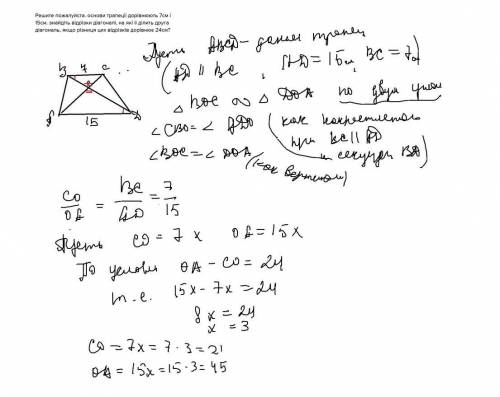 Решите пожалуйста. основи трапеції дорівнюють 7см і
15см. знайдіть відрізки діагоналі, на які її ділить друга
діагональ, якщо різниця цих відрізків дорівнює 24см?
Пусть ABCD - данная трапец
(AD || BC, AD = 15 м, BC = 7 м
B 7 C
A 15 D
△ BOC ∞ △ DOA по двум углам
∠ CBO = ∠ ADO (как накрестлежа
при BC || AD
и секущей BD)
∠ BOC = ∠ AOD (как вертикал)
CO/OA = BC/AD = 7/15
Пусть CO = 7x OA = 15x
По условию OA - CO = 24
т.е. 15x - 7x = 24
8x = 24
x = 3
CO = 7x = 7·3 = 21
OA = 15x = 15·3 = 45